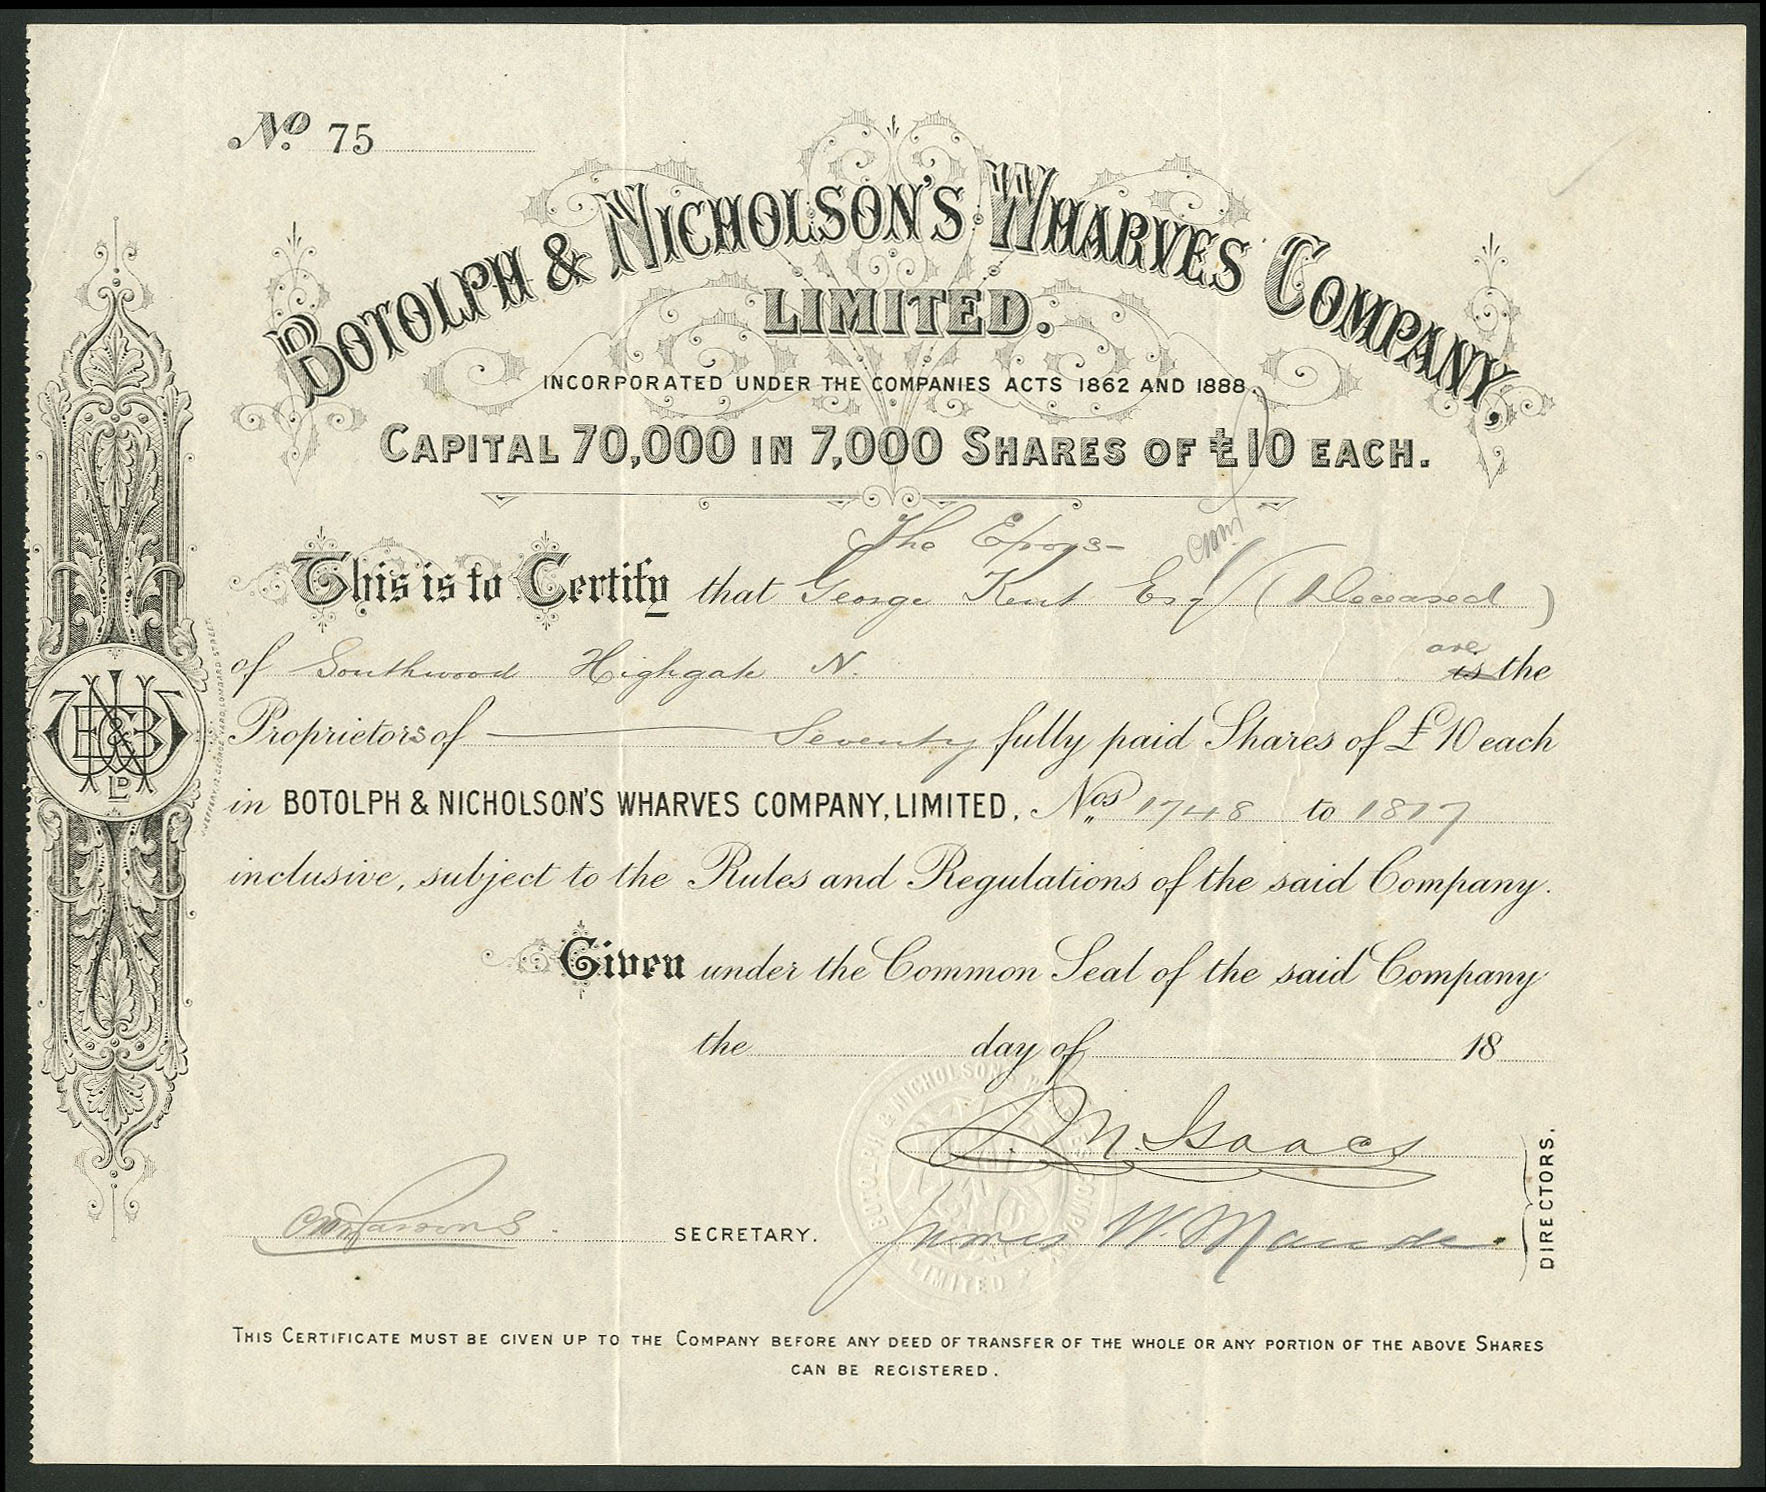 No. 75
BOTOLPH & NICHOLSON'S WHARVES COMPANY,
LIMITED.
INCORPORATED UNDER THE COMPANIES ACTS 1862 AND 1888.
CAPITAL 70,000 IN 7,000 SHARES OF £10 EACH.
The Exors
This is to Certify that George Kent Esq (Deceased)
of Southwood Highgate N. are is the
Proprietors of Seventy fully paid Shares of £10 each
in BOTOLPH & NICHOLSON'S WHARVES COMPANY, LIMITED. Nos 1748 to 1817
inclusive, subject to the Rules and Regulations of the said Company.
Given under the Common Seal of the said Company
the day of 18
J. M. Isaacs
James W. Maude
SECRETARY.
DIRECTORS.
BOTOLPH & NICHOLSON'S WHARVES COMPANY LIMITED
THIS CERTIFICATE MUST BE GIVEN UP TO THE COMPANY BEFORE ANY DEED OF TRANSFER OF THE WHOLE OR ANY PORTION OF THE ABOVE SHARES
CAN BE REGISTERED.